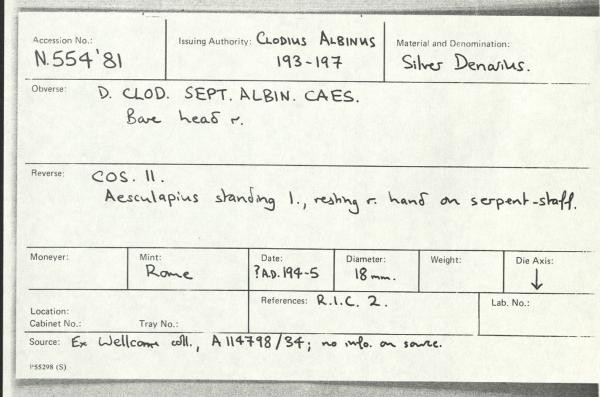 Accession No.: N.554'81
Issuing Authority: CLODIUS ALBINUS
193-197
Material and Denomination:
Silver Denarius.
Obverse: D. CLOD. SEPT. ALBIN. CAES.
Bare head r.
Reverse: COS. II.
Aesculapius standing l., resting r. hand on serpent-staff.
Moneyer:
Mint: Rome
Date: ?A.D. 194-5
Diameter: 18 mm.
Weight:
Die Axis: ↓
Location:
Cabinet No.: Tray No.:
References: R.I.C. 2.
Lab. No.:
Source: Ex Wellcome coll., A114798/34; no info. on source.
P55298 (S)